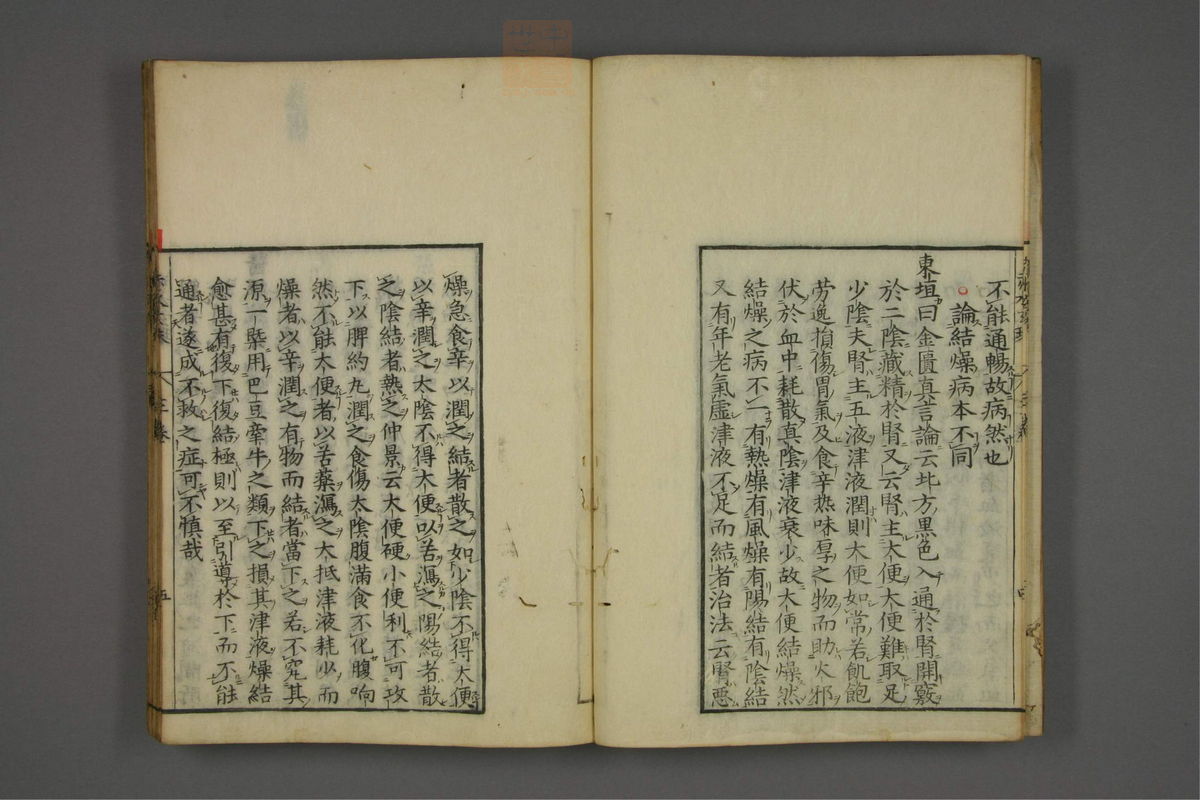 不能通暢故病然也
論結燥病本不同
東垣曰金匱真言論云北方黒色入通於腎開竅
於二陰藏精於腎又云腎主大便大便難取足
少陰夫腎主五液津液潤則大便如常若飢飽
労逸損傷胃氣及食辛热味厚之物而助火邪
伏於血中耗散真陰津液衰少故大便結燥然
結燥之病不一有熱燥有風燥有陽結有陰結
又有年老氣虛津液不足而結者治法云腎悪
燥急食辛以潤之結者散之如少陰不得大便
以辛潤之太陰不得大便以苦瀉之陽結者散
之陰結者熱之仲景云大便硬小便利不可攻
下以脾約丸潤之食傷太陰腹滿食不化腹响
然不能大便者以苦藥瀉之大抵津液耗少而
燥者以辛潤之有物而結者當下之若不究其
源一槩用巴豆牽牛之類下之損其津液燥結
愈甚有復下復結極則以至引導於下而不能
通者遂成不救之症可不慎哉
五